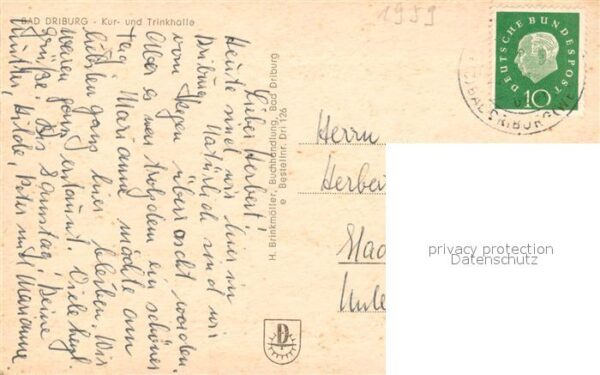 BAD DRIBURG - Kur- und Trinkhalle
Lieber Herbert!
Heute sind wir hier in
Driburg. Natürlich sind wir
vom Regen überrascht worden.
Aber es war trotzdem ein schöner
Tag. Marianne möchte am
liebsten ganz hier bleiben. Wir
waren ganz erstaunt. Viele herzl.
Grüße! Bis Samstag! Deine
Hilde, Peter und Marianne.
H. Brinkmöller, Buchhandlung, Bad Driburg
e Bestellnr. Dri 126
1959
DEUTSCHE BUNDESPOST
10
BAD DRIBURG
Herrn
Herber
Stad
Unte
privacy protection
Datenschutz